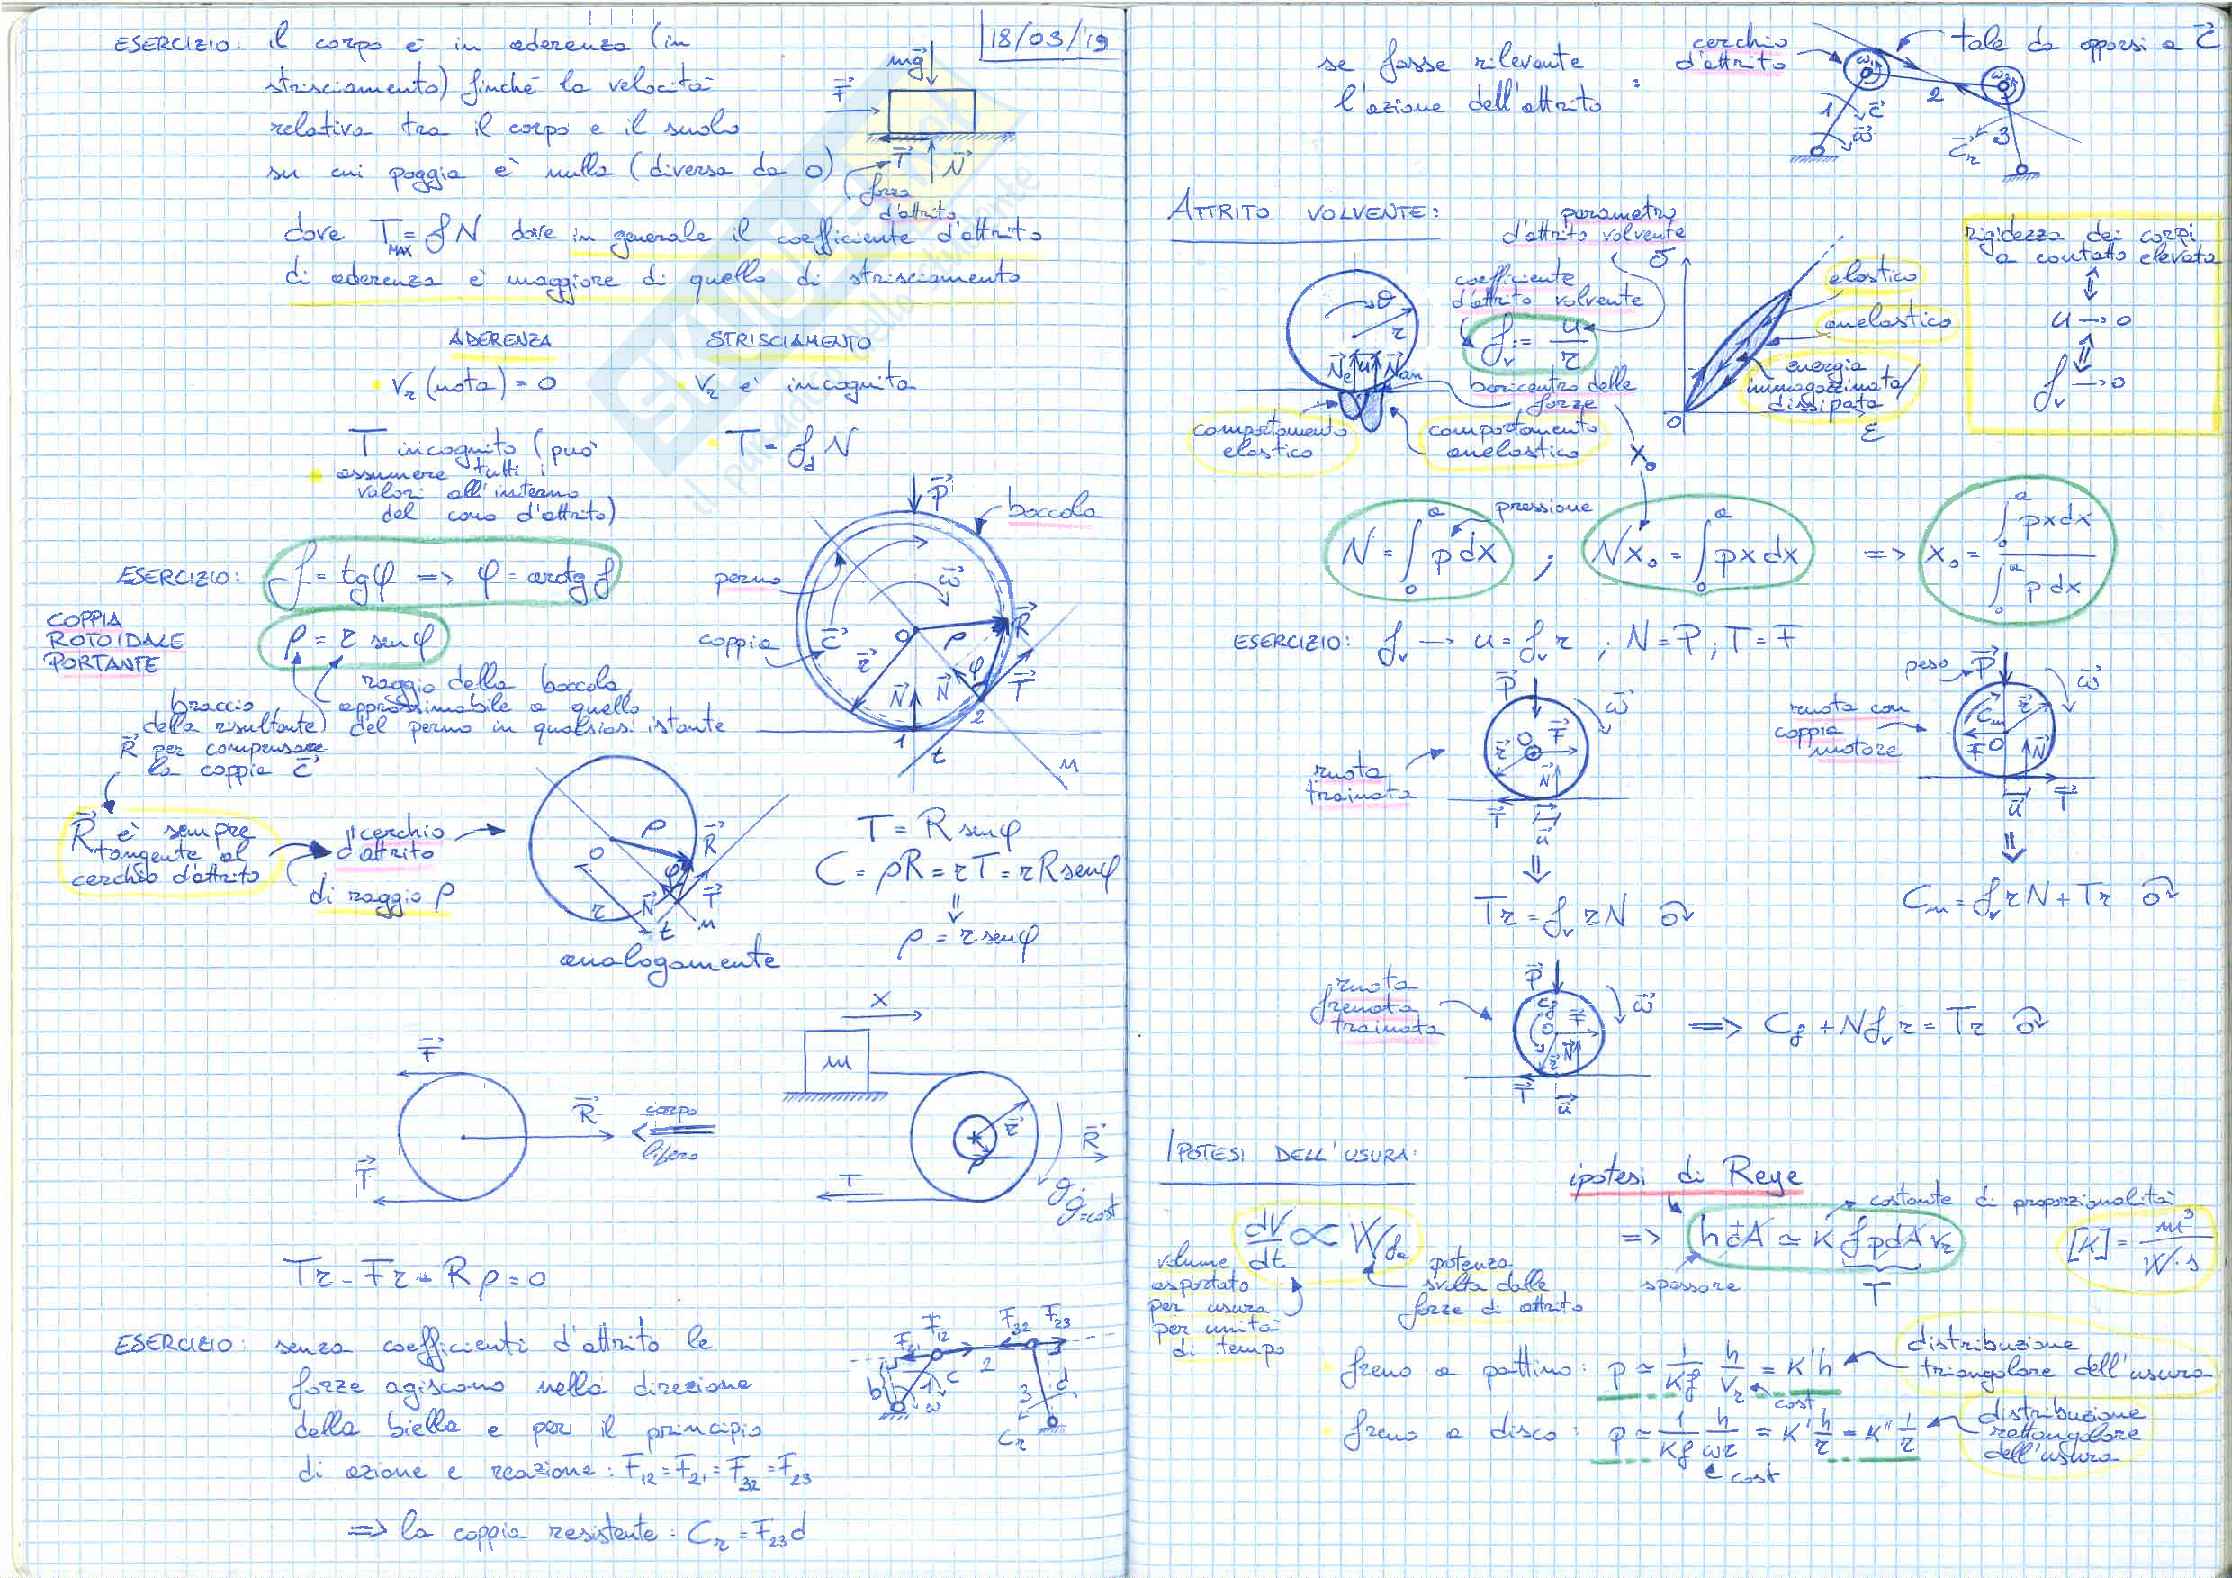 18/03/19
ESERCIZIO: il corpo è in aderenza (in
strisciamento) finché la velocità
relativa tra il corpo e il suolo
su cui poggia è nulla (diversa da 0)
mg
F
T
N
forza
d'attrito
dove T_MAX = f N dove in generale il coefficiente d'attrito
di aderenza è maggiore di quello di strisciamento
ADERENZA
STRISCIAMENTO
v_r (nota) = 0
v_r è incognita
T incognito (può
assumere tutti i
valori all'interno
del cono d'attrito)
T = f_d N
ESERCIZIO: f = tgφ => φ = arctg f
COPPIA
ROTOIDALE
PORTANTE
ρ = r senφ
raggio della boccola,
approssimabile a quello
del perno in qualsiasi istante
braccio
della risultante
R per compensare
la coppia C
P
boccola
perno
coppia C
ω
O
ρ
R
r
N
N
φ
T
1
2
t
n
R è sempre
tangente al
cerchio d'attrito
"cerchio
d'attrito
di raggio ρ
O
ρ
R
r
N
φ
T
t
n
analogamente
T = R senφ
C = ρR = rT = rR senφ
ρ = r senφ
F
R
T
corpo
libero
x
m
r
ρ
R
T
Tr - Fr - Rρ = 0
ESERCIZIO: senza coefficienti d'attrito le
forze agiscono nella direzione
della biella e per il principio
di azione e reazione: F12 = F21 = F32 = F23
=> la coppia resistente: C_r = F23 d
F21
F12
F32
F23
b
1
c
ω
2
3
d
C_r
se fosse rilevante
l'azione dell'attrito :
cerchio
d'attrito
tale da opporsi a C
1
C
ω
2
3
C_r
ATTRITO VOLVENTE:
parametro
d'attrito volvente
coefficiente
d'attrito volvente
f_v := u/r
θ
r
N_e
u
N_an
baricentro delle
forze
x_0
comportamento
elastico
comportamento
anelastico
σ
elastico
anelastico
energia
immagazzinata/
dissipata
O
ε
rigidezza dei corpi
a contatto elevata
u → 0
f_v → 0
N = ∫_0^a p dx ; N x_0 = ∫_0^a p x dx => x_0 = ∫_0^a p x dx / ∫_0^a p dx
pressione
ESERCIZIO: f_v → u = f_v r ; N = P ; T = F
P
ω
O
F
r
N
T
u
ruota
trainata
Tr = f_v r N
peso P
ω
C_m
r
F
O
N
u
T
ruota con
coppia
motore
C_m = f_v r N + Tr
ruota
frenata
trainata
P
C_f
ω
O
F
r
N
T
u
=> C_f + N f_v r = Tr
IPOTESI DELL'USURA:
ipotesi di Reye
dV/dt ∝ W_fa
volume
asportato
per usura
per unità
di tempo
potenza
svolta dalle
forze di attrito
=> h dA ≃ K f p dA v_r
costante di proporzionalità
spessore
T
[K] = m³/W·s
freno a pattino: p ≃ 1/Kf h/v_r = K'h
cost
distribuzione
triangolare dell'usura
freno a disco: p ≃ 1/Kf h/ωr = K' h/r = K'' 1/r
cost
distribuzione
rettangolare
dell'usura